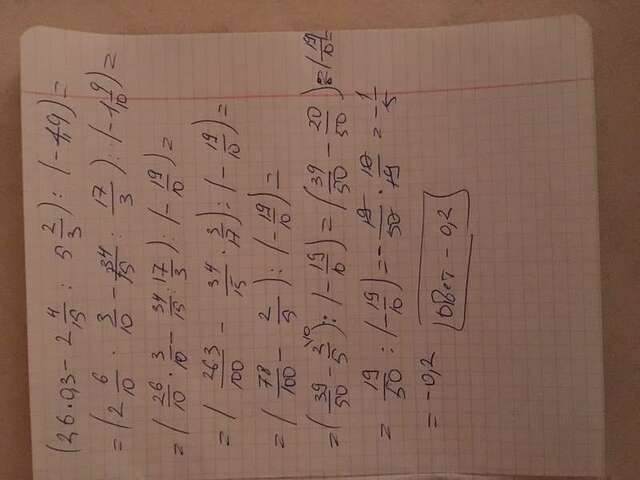 (2,6·0,3 - 2 4/15 : 5 2/3) : (-1,9) =
= (2 6/10 · 3/10 - 34/15 : 17/3) : (-1 9/10) =
= (26/10 · 3/10 - 34/15 : 17/3) : (-19/10) =
= (26 3/100 - 34/15 · 3/17) : (-19/10) =
= (78/100 - 2/5) : (-19/10) =
= (39/50 - 2/5 \10) : (-19/10) = (39/50 - 20/50) : (-19/10) =
= 19/50 : (-19/10) = - 19/50 · 10/19 = - 1/5
= -0,2 Ответ - 0,2